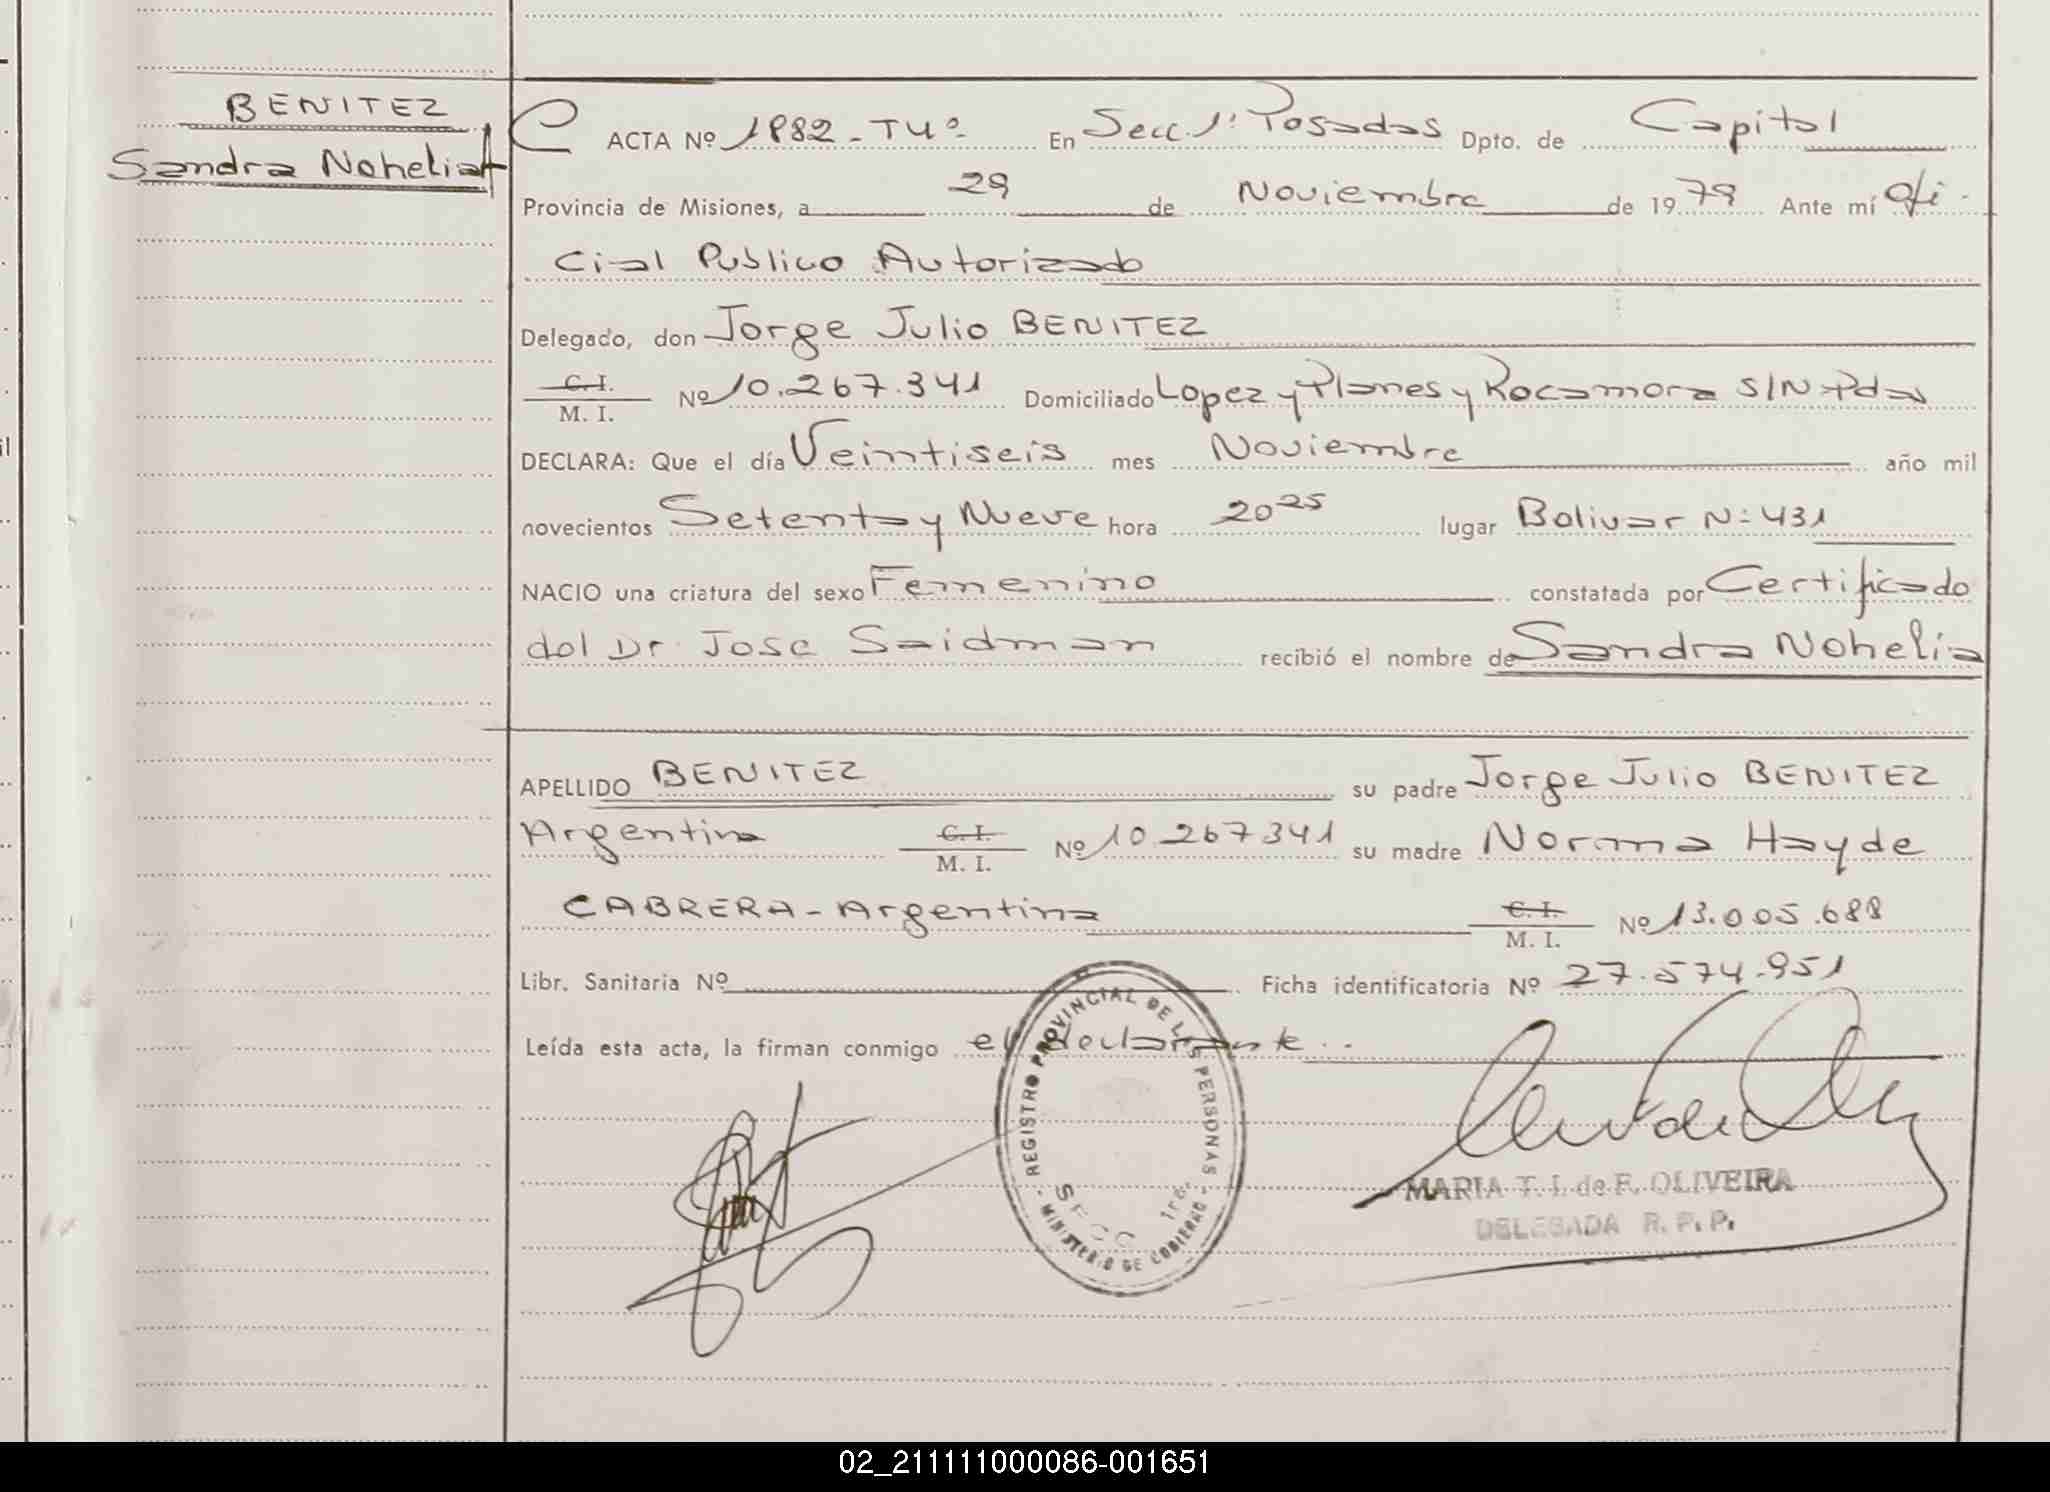 BENITEZ
Sandra Nohelia
ACTA Nº 1982 - T4º - En Secc. 1ª Posadas Dpto. de Capital
Provincia de Misiones, a 29 de Noviembre de 1979 Ante mí Ofi-
cial Publico Autorizado
Delegado, don Jorge Julio BENITEZ
C. I.
M. I. Nº 10.267.341 Domiciliado Lopez y Planes y Rocamora S/N-Pdas
DECLARA: Que el día Veintiseis mes Noviembre año mil
novecientos Setenta y Nueve hora 20 25 lugar Bolivar Nº 431
NACIO una criatura del sexo Femenino constatada por Certificado
del Dr. Jose Saidman recibió el nombre de Sandra Nohelia
APELLIDO BENITEZ su padre Jorge Julio BENITEZ
Argentina C. I.
M. I. Nº 10.267341 su madre Norma Hayde
CABRERA - Argentina C. I.
M. I. Nº 13.005.688
Libr. Sanitaria Nº Ficha identificatoria Nº 27.574.951
Leída esta acta, la firman conmigo el declarante..
REGISTRO PROVINCIAL DE LAS PERSONAS
SECC 1ra.
- MINISTERIO DE GOBIERNO -
MARIA T. I. de F. OLIVEIRA
DELEGADA R. P. P.
02_211111000086-001651